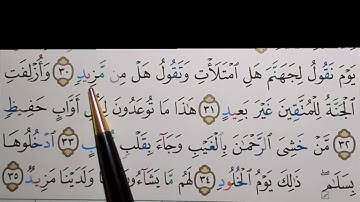 يَوْمَ نَقُولُ لِجَهَنَّمَ هَلِ ٱمْتَلَأْتِ وَتَقُولُ هَلْ مِن مَّزِيدٍ ٣٠ وَأُزْلِفَتِ
ٱلْجَنَّةُ لِلْمُتَّقِينَ غَيْرَ بَعِيدٍ ٣١ هَٰذَا مَا تُوعَدُونَ أَوَّابٍ حَفِيظٍ
٣٢ مَّنْ خَشِىَ ٱلرَّحْمَٰنَ بِٱلْغَيْبِ وَجَآءَ بِقَلْبٍ ٣٣ ٱدْخُلُوهَا
بِسَلَٰمٍ ۖ ذَٰلِكَ يَوْمُ ٱلْخُلُودِ ٣٤ لَهُم مَّا يَشَآءُونَ وَلَدَيْنَا مَزِيدٌ ٣٥